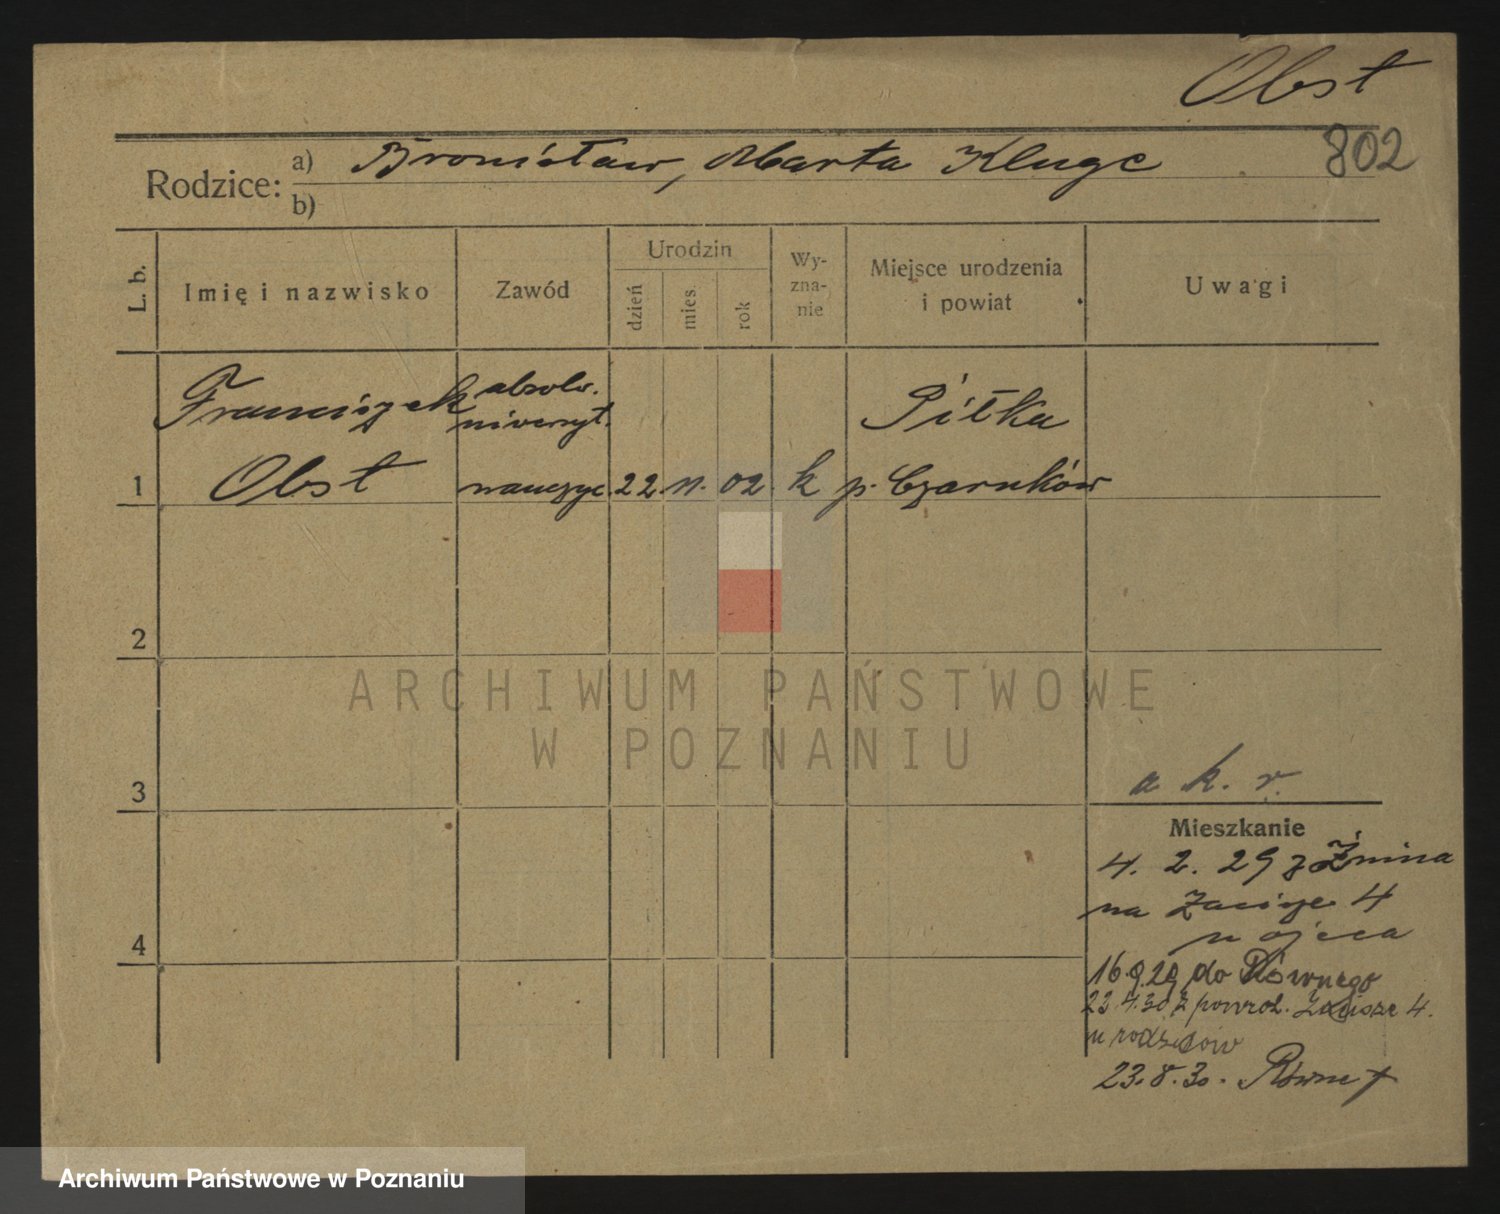 Obst
802
Rodzice: a) Bronisław, Marta Kluge
b)
L. b. Imię i nazwisko Zawód Urodzin dzień mies. rok Wy-zna-nie Miejsce urodzenia i powiat Uwagi
Franciszek absolw. Piłka
uniwersyt.
1 Obst nauczyc. 22. 11. 02 k p. Czarnków
2
ARCHIWUM PAŃSTWOWE
W POZNANIU
3 a k. r.
Mieszkanie
4. 2. 29 z Żnina
na Zacisze 4
4 u ojca
16.9.29 do Równego
22.4.30 z powrot. Zacisze 4.
u rodziców
23.8.30. Równe
Archiwum Państwowe w Poznaniu